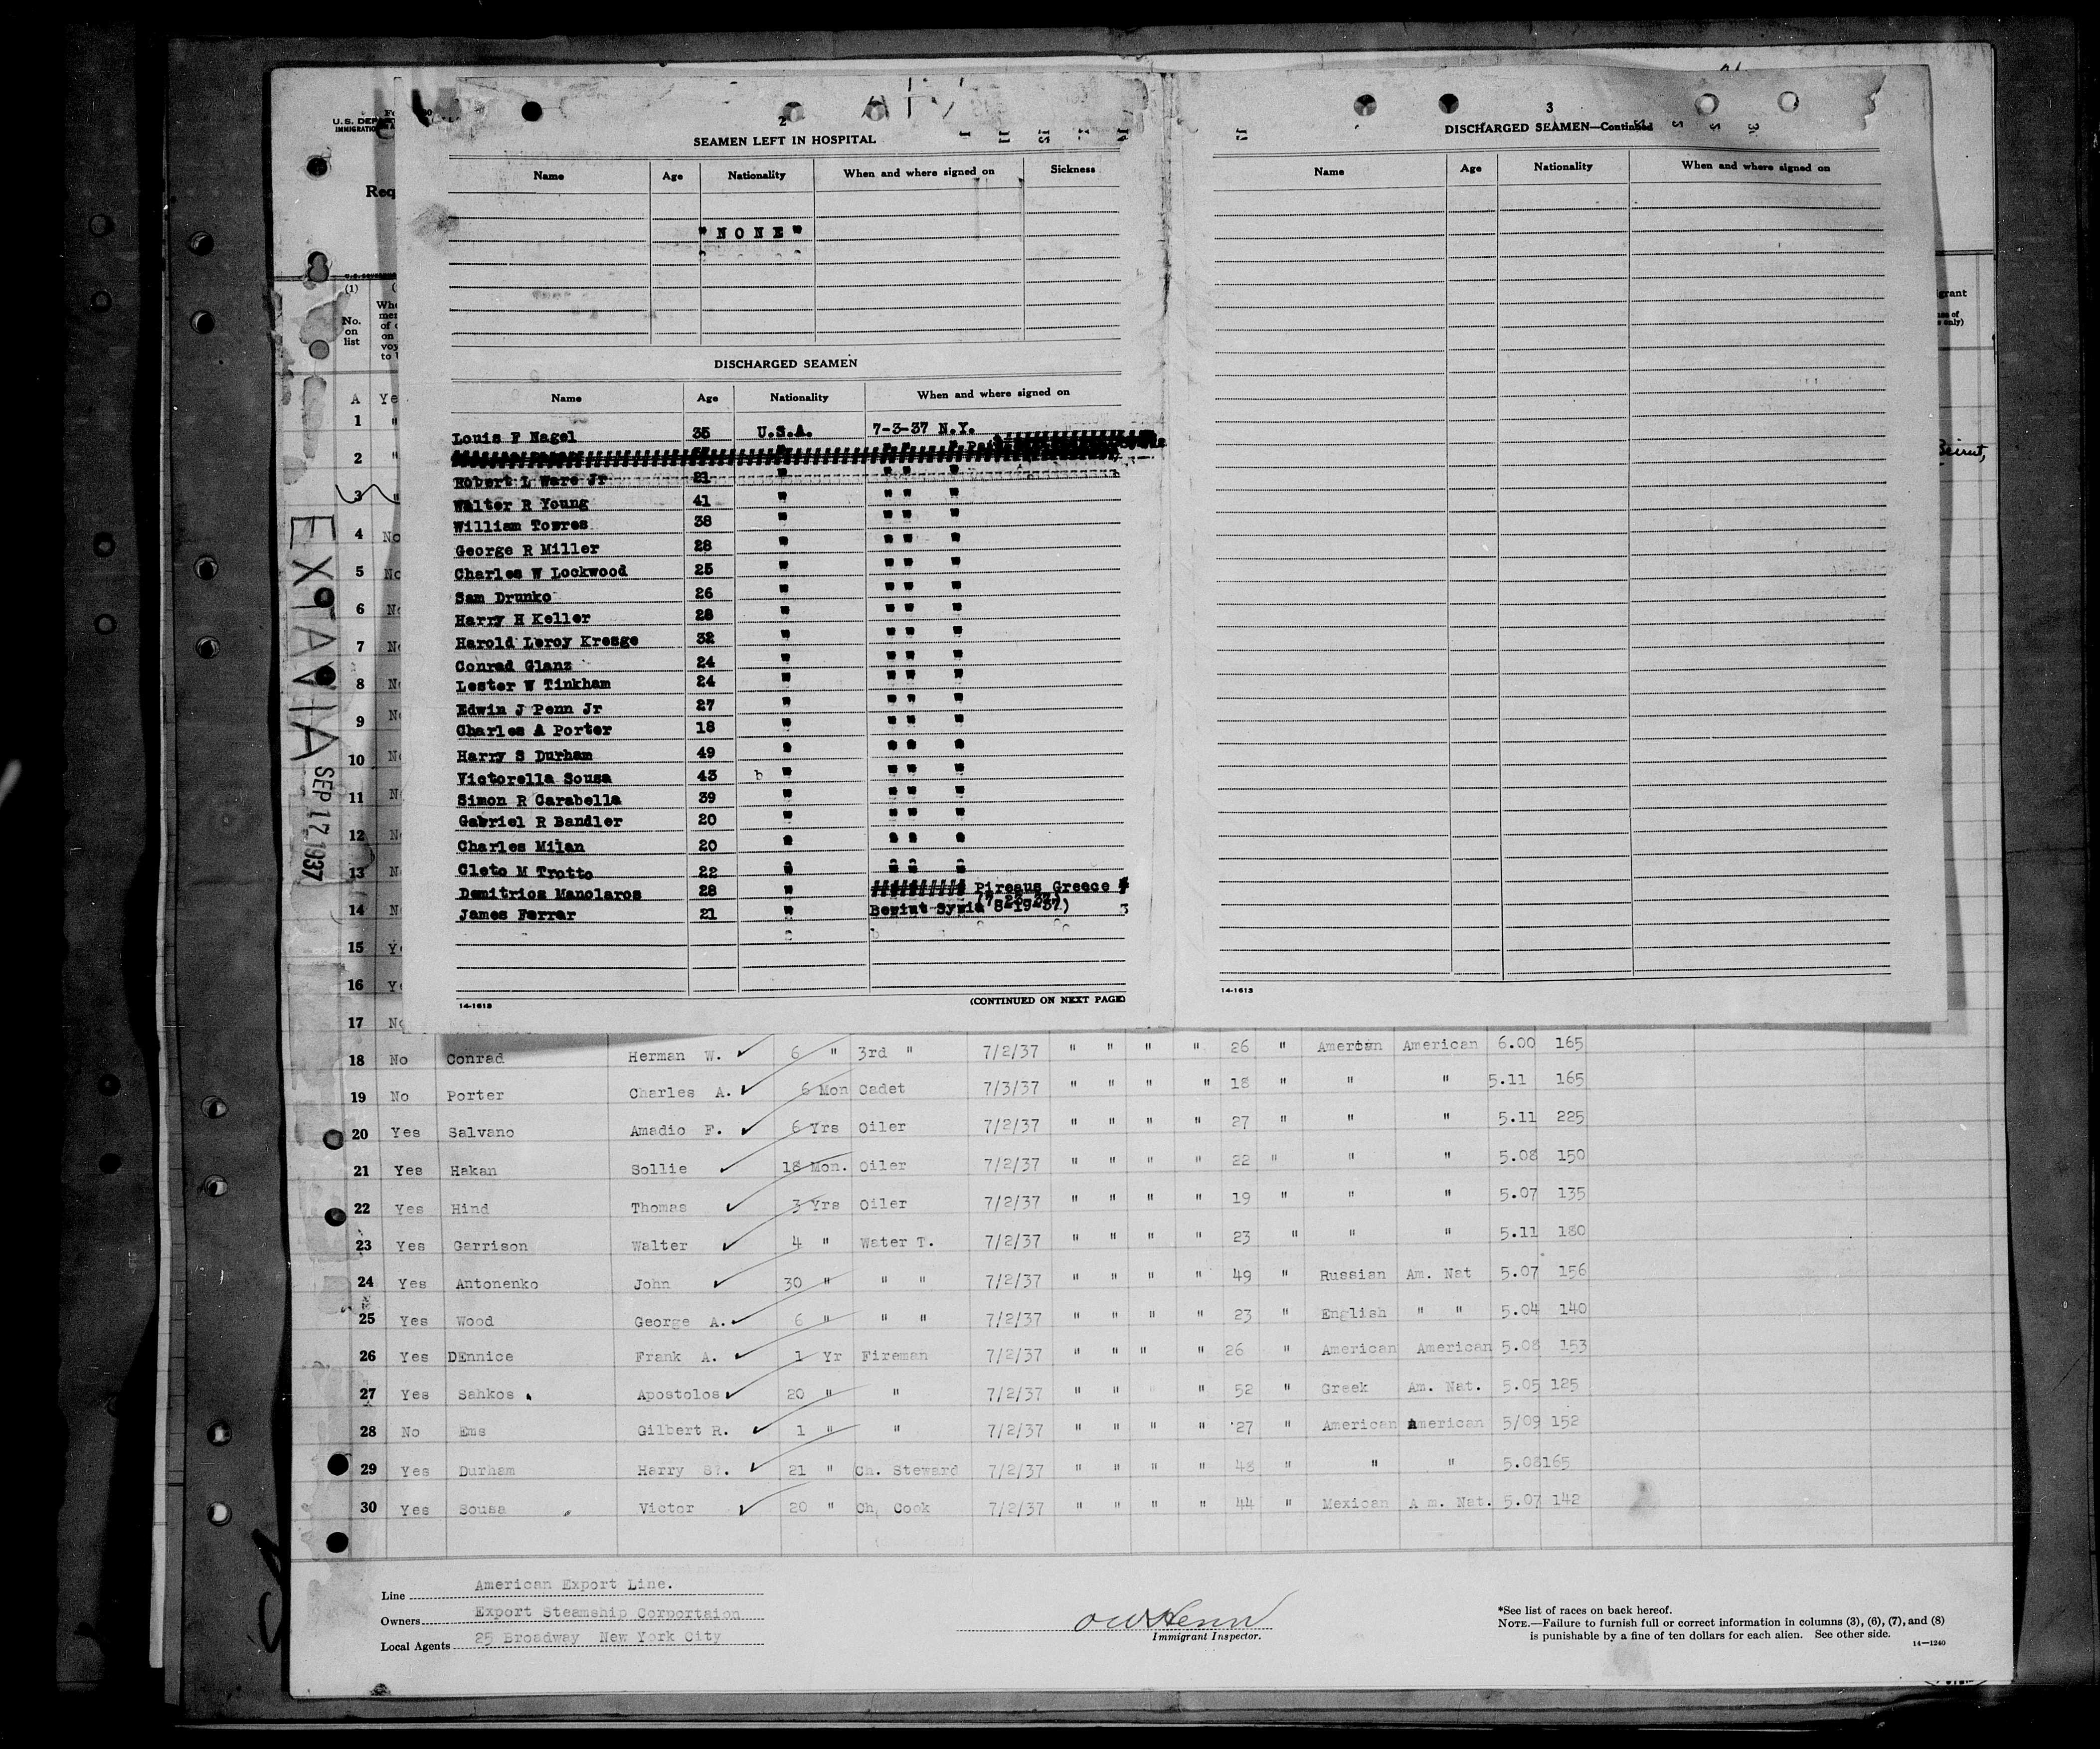 U.S. DEP
IMMIGRATIO
Req
(1)
No. on list
EXTAVIA
SEP 17 1937
2
SEAMEN LEFT IN HOSPITAL
Name Age Nationality When and where signed on Sickness
"NONE"
DISCHARGED SEAMEN
Name Age Nationality When and where signed on
Louis F Nagel 35 U.S.A. 7-3-37 N.Y.
Robert L Ware Jr 21 " " " "
Walter R Young 41 " " " "
William Towres 38 " " " "
George R Miller 28 " " " "
Charles W Lockwood 25 " " " "
Sam Drunko 26 " " " "
Harry H Keller 28 " " " "
Harold Leroy Kresge 32 " " " "
Conrad Glanz 24 " " " "
Lester W Tinkham 24 " " " "
Edwin J Penn Jr 27 " " " "
Charles A Porter 18 " " " "
Harry S Durham 49 " " " "
Victorella Sousa 43 " " " "
Simon R Carabella 39 " " " "
Gabriel R Bandler 20 " " " "
Charles Milan 20 " " " "
Cleto M Trotto 22 " " " "
Demitrios Manolaros 28 " Pireaus Greece
James Ferrar 21 " Beriut Syria 8-19-37)
14-1613 (CONTINUED ON NEXT PAGE)
3
DISCHARGED SEAMEN—Continued
Name Age Nationality When and where signed on
14-1613
Beirut,
A Ye
1 "
2 "
3 "
4 No
5 No
6 No
7 No
8 No
9 No
10 No
11 N
12 No
13 N
14 N
15 Y
16 Y
17 No
18 No Conrad Herman W. 6 " 3rd " 7/2/37 " " " " 26 " American American 6.00 165
19 No Porter Charles A. 6 Mon Cadet 7/3/37 " " " " 18 " " " 5.11 165
20 Yes Salvano Amadio F. 6 Yrs Oiler 7/2/37 " " " " 27 " " " 5.11 225
21 Yes Hakan Sollie 18 Mon. Oiler 7/2/37 " " " " 22 " " " 5.08 150
22 Yes Hind Thomas 3 Yrs Oiler 7/2/37 " " " " 19 " " " 5.07 135
23 Yes Garrison Walter 4 " Water T. 7/2/37 " " " " 23 " " " 5.11 180
24 Yes Antonenko John 30 " " " 7/2/37 " " " " 49 " Russian Am. Nat 5.07 156
25 Yes Wood George A. 6 " " " 7/2/37 " " " " 23 " English " " 5.04 140
26 Yes DEnnice Frank A. 1 Yr Fireman 7/2/37 " " " " 26 " American American 5.08 153
27 Yes Sahkos Apostolos 20 " " 7/2/37 " " " " 52 " Greek Am. Nat. 5.05 125
28 No Ems Gilbert R. 1 " " 7/2/37 " " " " 27 " American American 5/09 152
29 Yes Durham Harry S?. 21 " Ch. Steward 7/2/37 " " " " 48 " " " 5.08 165
30 Yes Sousa Victor 20 " Ch, Cook 7/2/37 " " " " 44 " Mexican A m. Nat. 5.07 142
Line American Export Line.
Owners Export Steamship Corportaion
Local Agents 25 Broadway New York City
OWHenn
Immigrant Inspector.
*See list of races on back hereof.
NOTE.—Failure to furnish full or correct information in columns (3), (6), (7), and (8)
is punishable by a fine of ten dollars for each alien. See other side.
14—1240